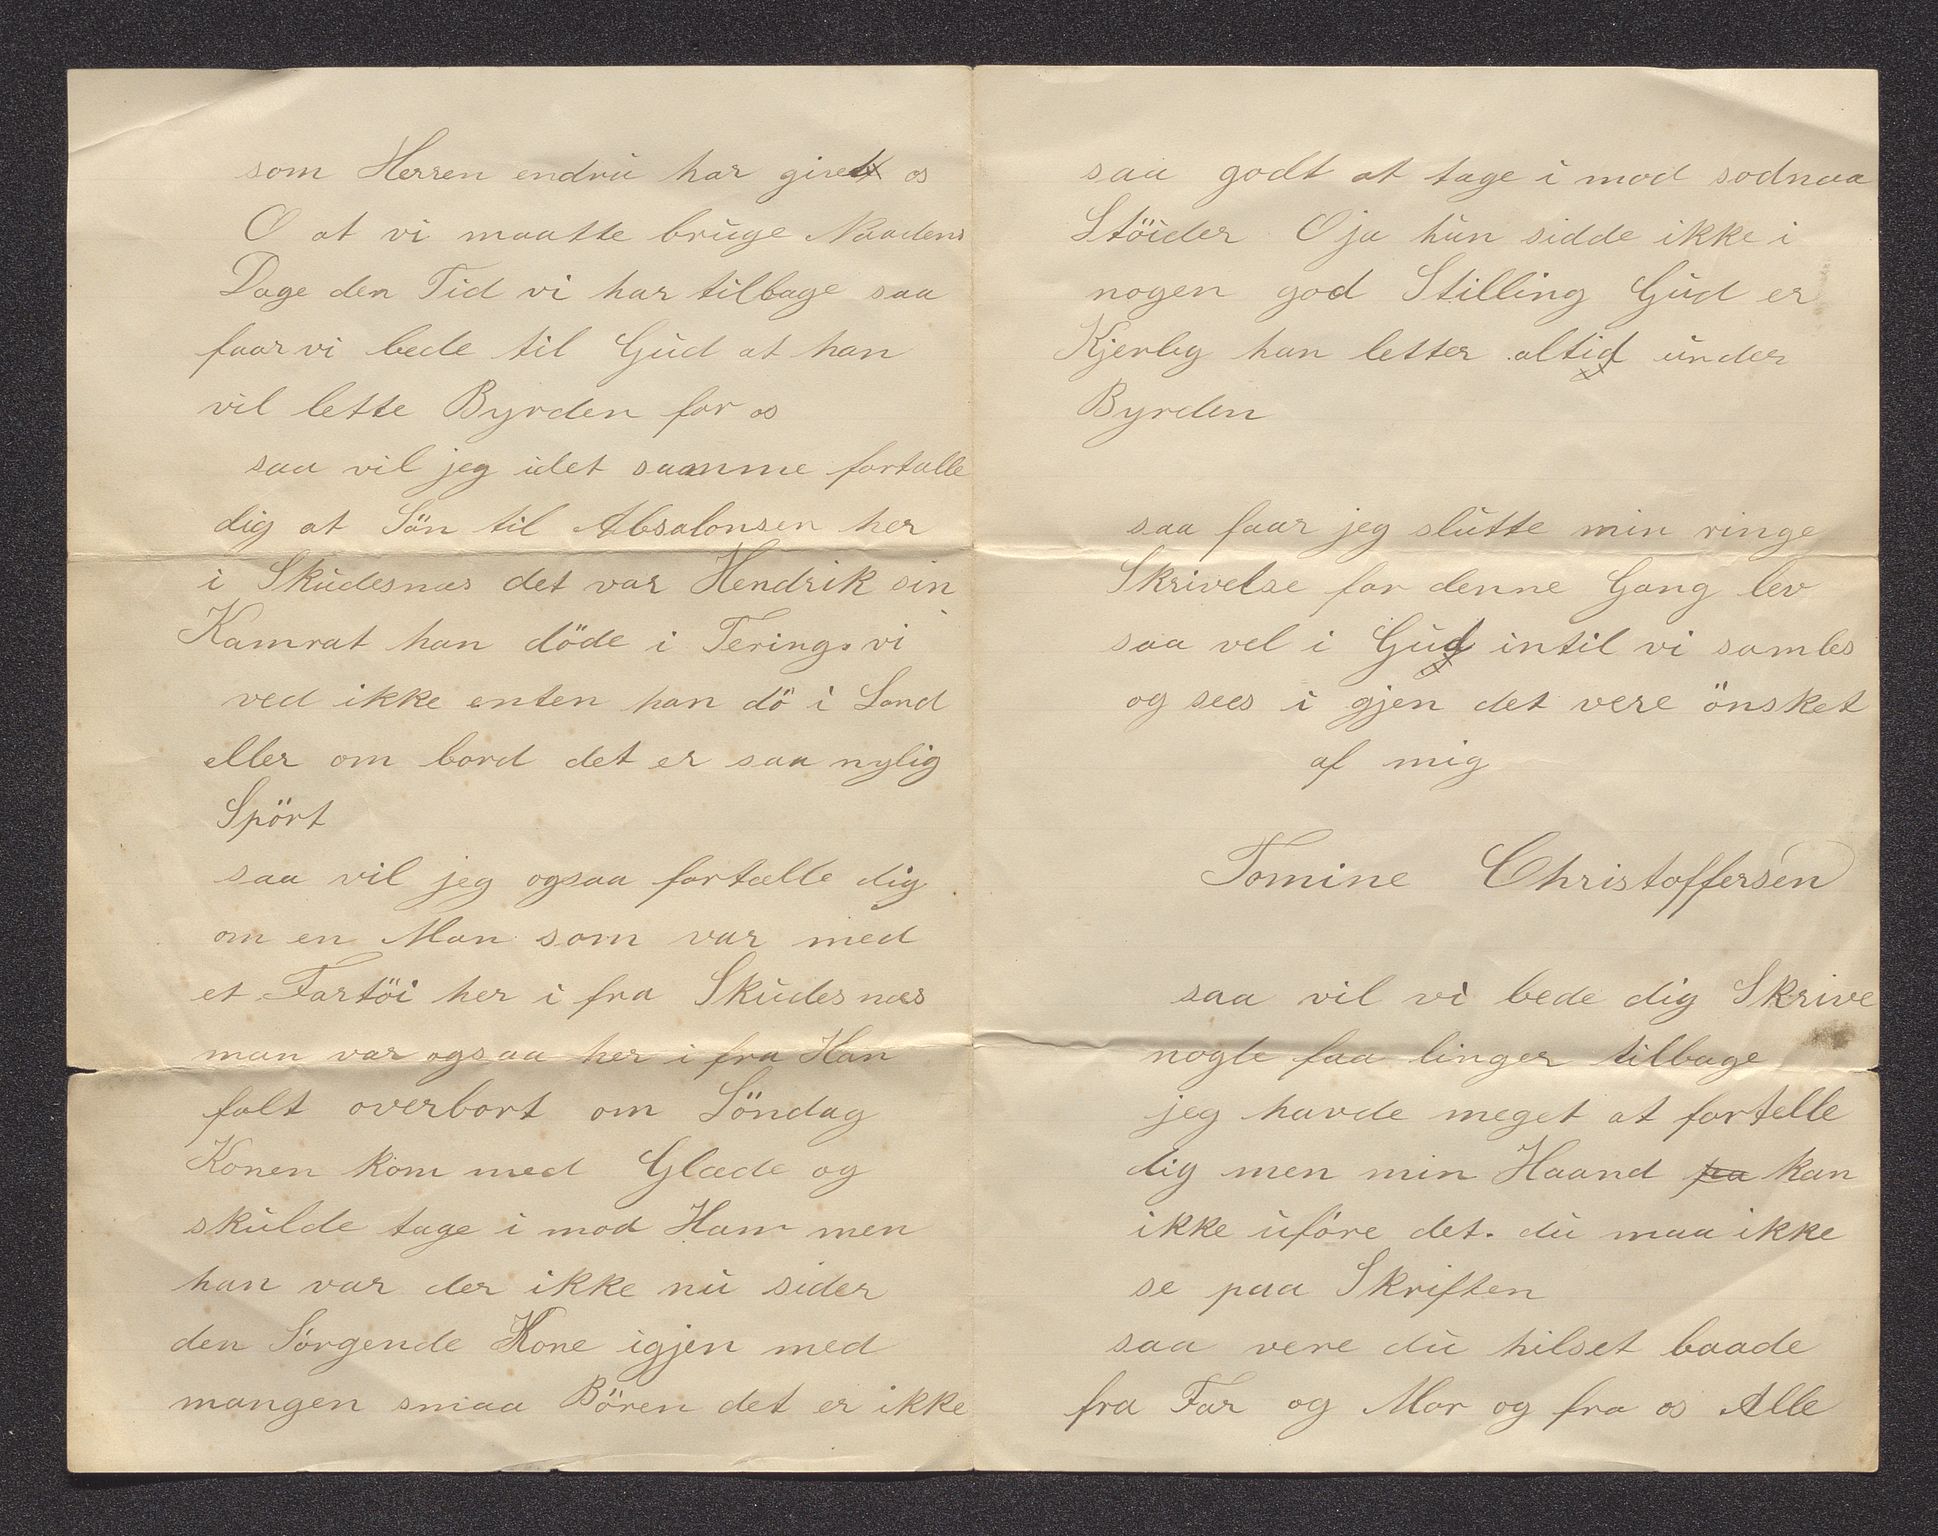 som Herren endnu har givet os
O at vi maatte bruge Naadens
Dage den Tid vi har tilbage saa
faar vi bede til Gud at han
vil lette Byrden for os
saa vil jeg idet samme fortalle
dig at Sön til Absalonsen her
i Skudesnæs det var Hendrik sin
Kamrat han döde i Tering. vi
ved ikke enten han dö i Land
eller om bord det er saa nylig
Spört
saa vil jeg ogsaa fortælle dig
om en Man som var med
et Fartöi her i fra Skudesnæs
man var ogsaa her i fra Han
falt overbort om Söndag
Konen kom med Glæde og
skulde tage i mod Ham men
han var der ikke nu sider
den Sörgende Kone igjen med
mangen smaa Bören det er ikke
saa godt at tage i mod sodnaa
Stöider O ja hun sidde ikke i
nogen god Stilling Gud er
Kjerlig han letter altid under
Byrden
saa faar jeg slutte min ringe
Skrivelse for denne Gang lev
saa vel i Gud intil vi samles
og sees i gjen det vere önsket
af mig
Tomine Christoffersen
saa vil vi bede dig Skrive
nogle faa linger tilbage
jeg havde meget at fortelle
dig men min Haand pa kan
ikke uföre det. du maa ikke
se paa Skriften
saa vere du hilset baade
fra Far og Mor og fra os Alle